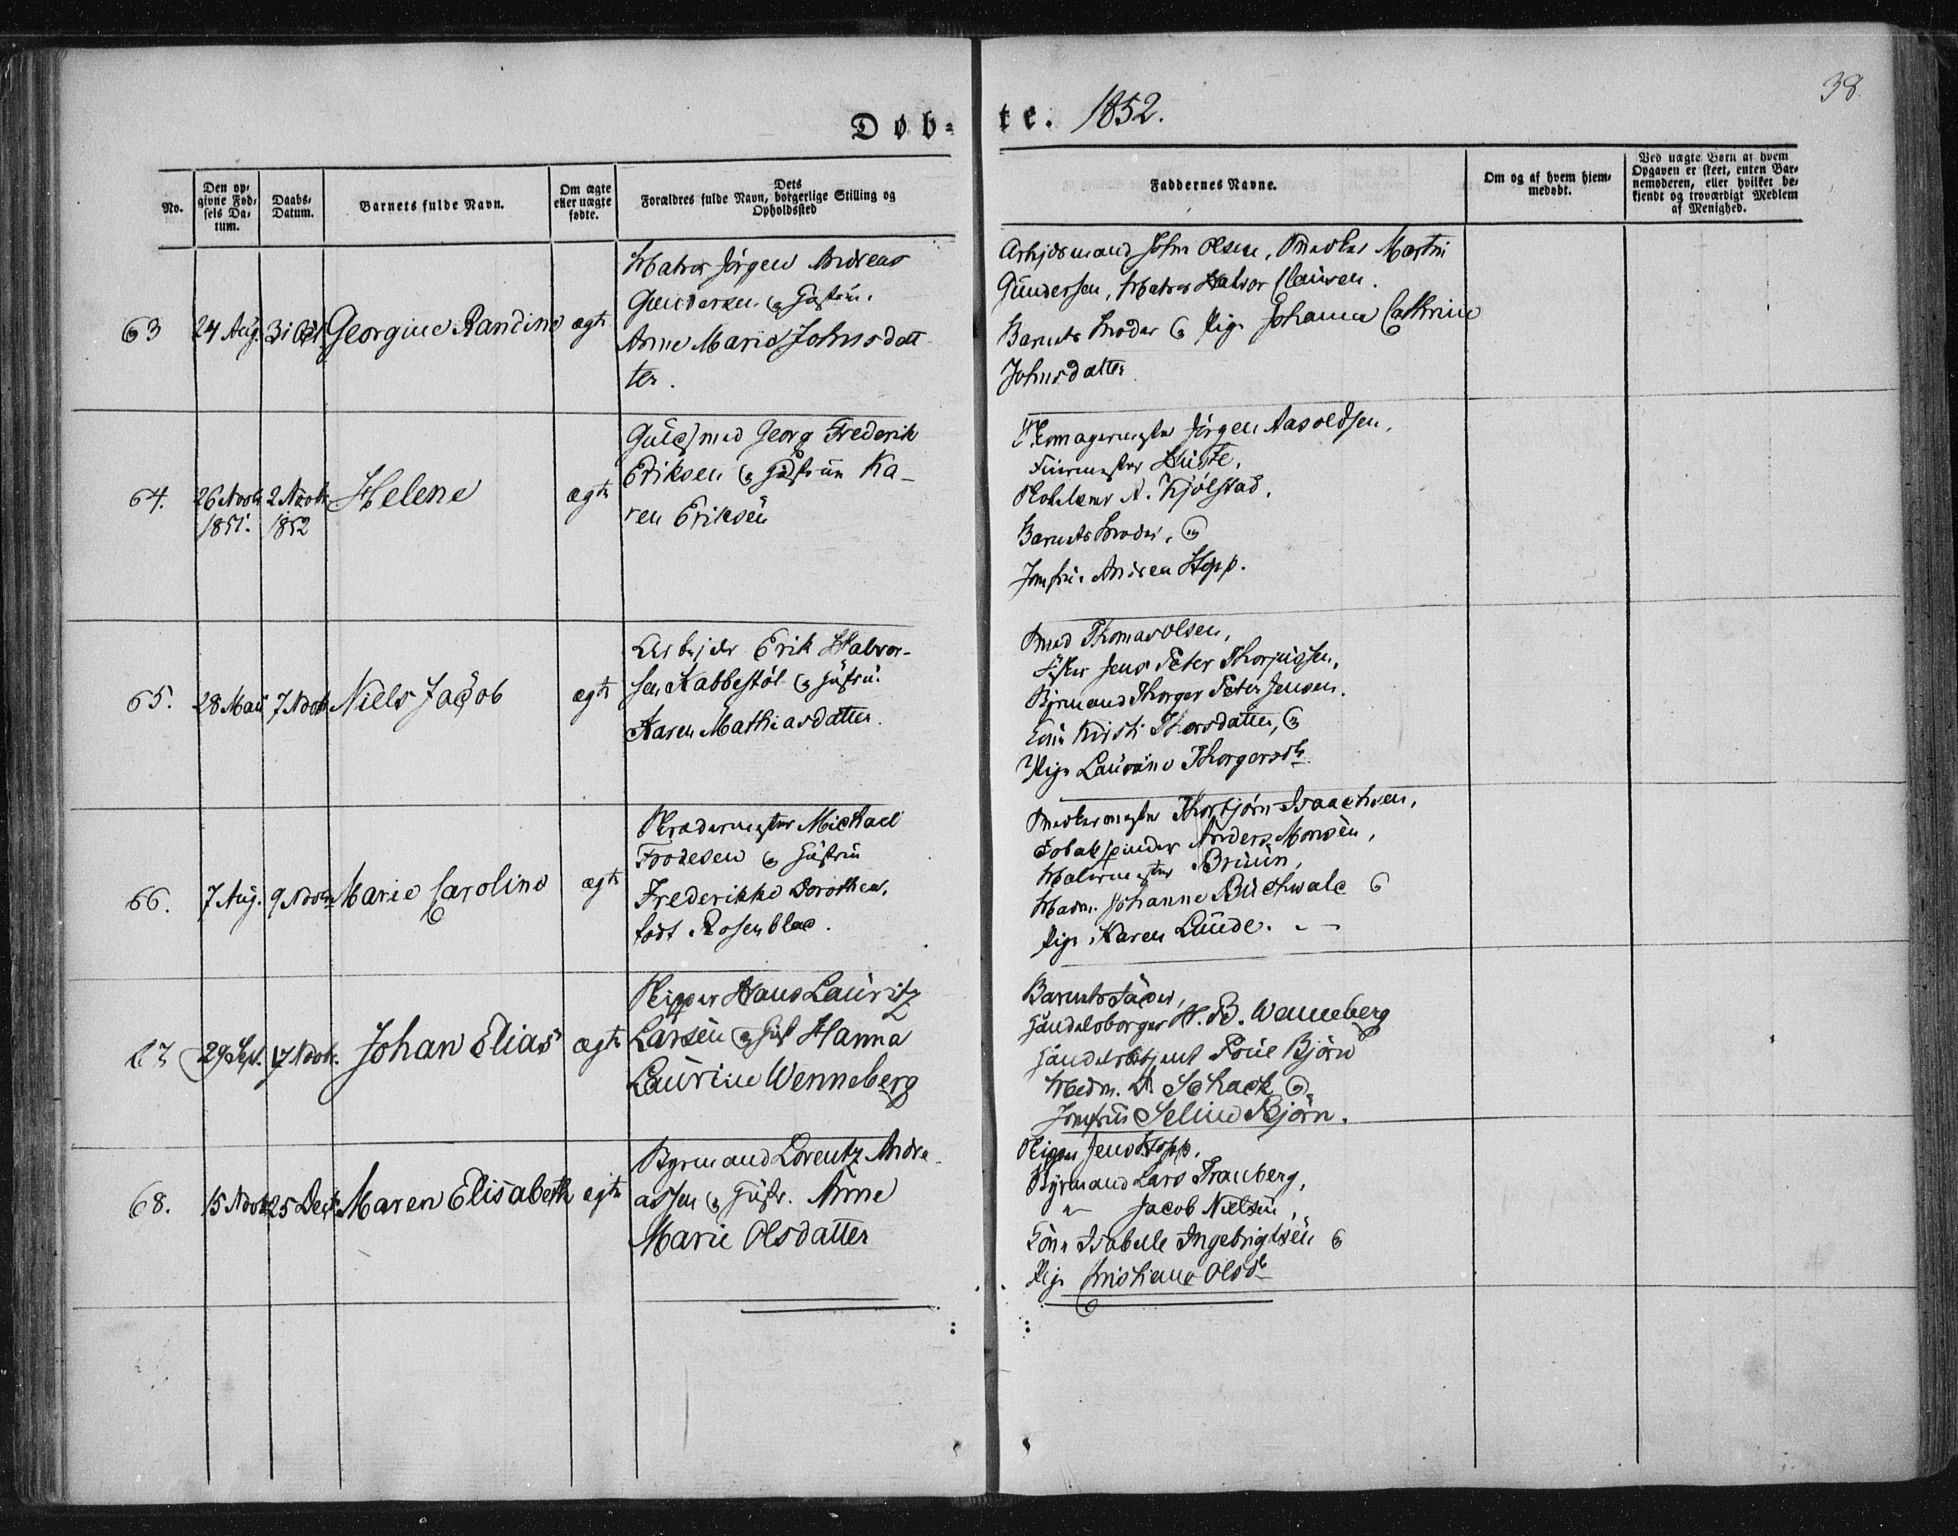 38.
Døb- te. 1852.
No.
Den op-
givne Fød-
sels Da-
tum.
Daabs-
Datum.
Barnets fulde Navn.
Om ægte
eller uægte
fødte.
Dets
Forældres fulde Navn, borgerlige Stilling og
Opholdssted
Faddernes Navne.
Om og af hvem hjem-
medøbt.
Ved uægte Børn af hvem
Opgaven er skeet, enten Bar-
nemoderen, eller hvilket be-
kjendt og troværdigt Medlem
af Menighed.
63 24 Aug. 31 Oct Georgine Randine ægte
Matros Jörgen Andreas
Gundersen & Hustru
Anne Marie Johnsdat
ter.
Arbejdsmand John Olsen, Martin
Gundersen, Matros Halvor Clausen.
Barnets Moder & Pige Johanna Cathrine
Johnsdatter
64. 26 Novbr 2 Novbr Helene ægte
1851. 1852
Guldsmed Georg Frederik
Eriksen & Hustru Ka-
ren Eriksen
Jörgen Aasoldsen,
N. Kjölstad,
Barnets Moder, &
Jomfru Andrea Hopp.
65. 28 Mai 7 Novbr Niels Jacob ægte
Arbejder Erik Halvor-
sen Kabbestöl & Hustru
Karen Mathiasdatter.
Smed Thomas Olsen,
Jens Peter
Bÿrmand Thorger Peter Jensen.
Kone Kirsti Thorsdatter, &
Pige Laurine Thorgersdtr
66. 7 Aug. 9 Novbr Marie Caroline ægte
Skrædermester Michael
Frodesen & Hustru
Frederikke Dorothea,
födt Rosenblad.
Thorbjörn Isaachsen,
Tobakspinder Anders Monsen,
Malermester Bruun,
Madm. Johanne Buchwald &
Pige Karen Lunde.
67 29 Sept. 17 Novbr. Johan Elias ægte
Skipper Hans Lauritz
Larsen & Hust Hanna
Laurine Wenneberg
Barnets Fader,
Handelsborger H. B. Wenneberg
Handelsbetjent Poul Björn
Madm. Schack &
Jomfru Seline Björn.
68. 15 Novbr 25 Decbr Maren Elisabeth ægte
Byrmand Lorentz Andre-
assen & Hustr. Anne
Marie Olsdatter
Skipper Jens Hopp.
Byrmand Lars Tranberg,
" Jacob Nielsen,
Kone Isabelle Ingebrigtsen &
Pige Christiane Olsdtr